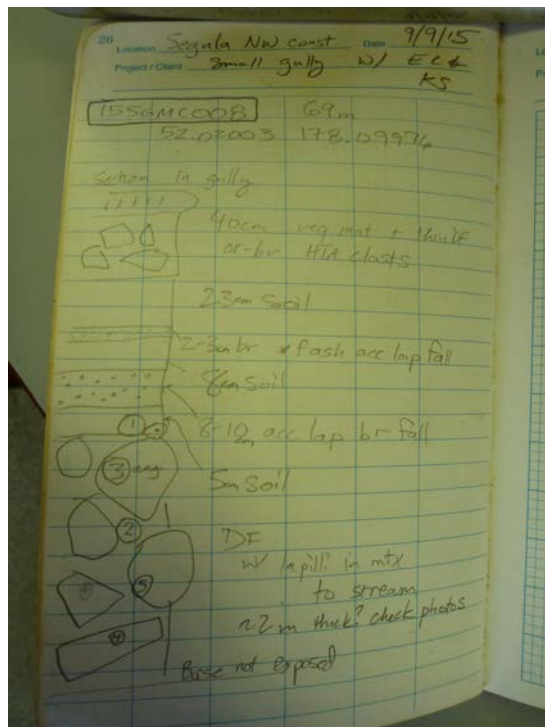 26 Location Segula NW coast Date 9/9/15
Project / Client Small gully w/ EC &
KS
15SGMC008 69m
52.02003 178.09976
section in gully
40cm veg mat + thin DF
or-br HTA clasts
23cm soil
2-3cm br fash acc lap fall
8cm soil
8-10cm acc lap br fall
1
3 ang
5cm soil
2
DF
w/ lapilli in mtx
5
to stream
~2m thick? check photos
4
Base not exposed